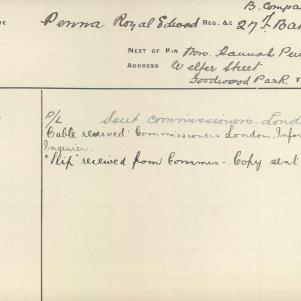 B. Compa
Penna Royal Edwod REG. &c 27th Bat
NEXT OF KIN Mrs. Hannah Pen
ADDRESS Welfer Street
Goodwood Park.
P/L Sent Commissioners. Lond
Cable received Commissioners London. Infor
Inquirer.
"Slip" received from Commrs. Copy sent